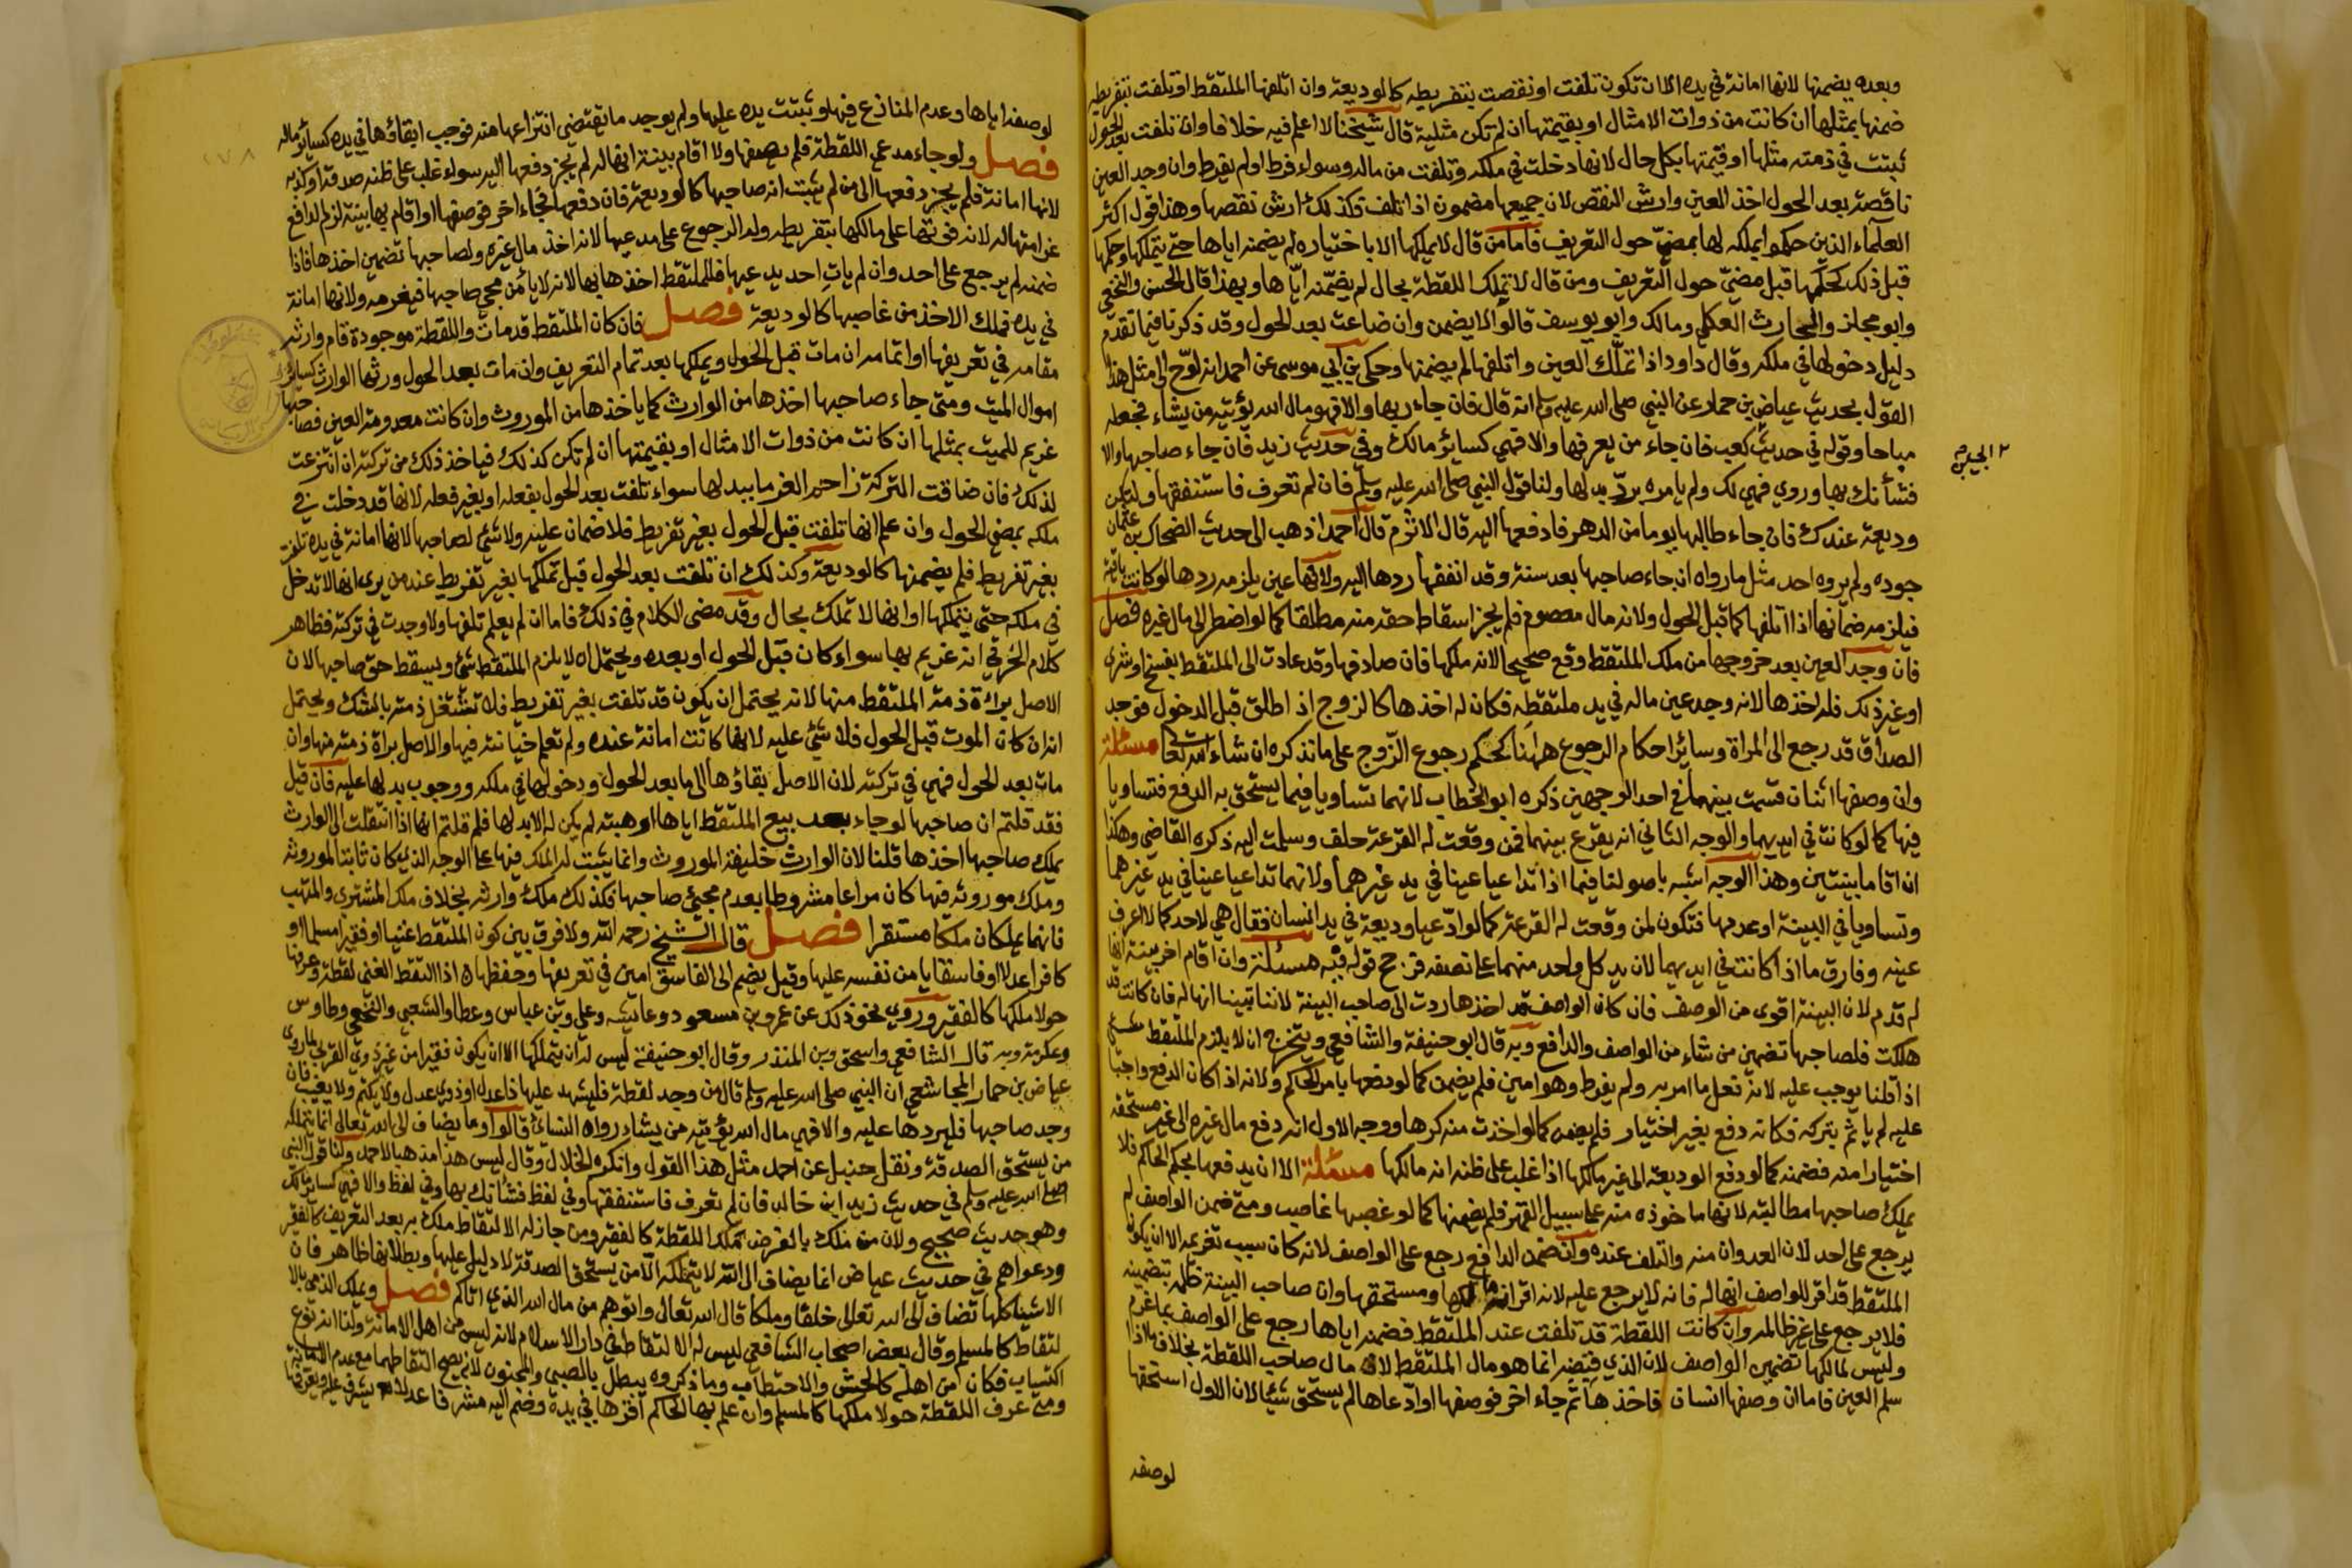 وبعده يضمنها لانها امانة في يده الا ان تكون تلفت او نقصت بتفريطه كالوديعة وان اتلفها الملتقط او تلفت بتفريطه
ضمنها بمثلها ان كانت من ذوات الامثال او بقيمتها ان لم تكن مثلية قال شيخنا لا اعلم فيه خلافا وان تلفت بعد الحول
ثبتت في ذمته مثلها او قيمتها بكل حال لانها دخلت في ملكه وتلفت من ماله وسواء فرط او لم يفرط وان وجد العين
ناقصة بعد الحول اخذ العين وارش النقص لان جميعها مضمون اذا تلف فكذلك ارش نقصها وهذا قول اكثر
العلماء الذين حكموا بملكه لها بمضي حول التعريف فاما من قال لا يملكها الا باختياره لم يضمنه اياها حتى يتملكها وحكمها
قبل ذلك كحكمها قبل مضي حول التعريف ومن قال لا تملك اللقطة بحال لم يضمنه اياها وبهذا قال الحسن والنخعي
وابو مجلز والحارث العكلي ومالك وابو يوسف قالوا لا يضمن وان ضاعت بعد الحول وقد ذكرنا فيما تقدم
دليل دخولها في ملكه وقال داود اذا تملك العين واتلفها لم يضمنها وحكى بن ابي موسى عن احمد انه لوح الى مثل هذا
القول بحديث عياض بن حمار عن النبي صلى الله عليه وسلم انه قال فان جاء ربها والا فهو مال الله يؤتيه من يشاء فجعله
مباحا وقوله في حديث كعب فان جاء من يعرفها والا فهي كسائر مالك وفي حديث زيد فان جاء صاحبها والا
فشأنك بها وروي فهي لك ولم يامره برد بدلها ولنا قول النبي صلى الله عليه وسلم فان لم تعرف فاستنفقها ولتكن
وديعة عندك فان جاء طالبها يوما من الدهر فادفعها اليه قال الاثرم قال احمد اذهب الى حديث الضحاك بن عثمان
جوده ولم يروه احد مثل ما رواه ان جاء صاحبها بعد سنة وقد انفقها ردها اليه ولانها عين يلزمه ردها لو كانت باقية
فيلزمه ضمانها اذا اتلفها كما قبل الحول ولانه مال معصوم فلم يجز اسقاط حقه منه مطلقا كما لو اضطر الى مال غيره فصل
فان وجد العين بعد خروجها من ملك الملتقط وقع صحيحا لانه ملكها فان صادفها وقد عادت الى الملتقط بفسخ او شرى
او غير ذلك فله اخذها لانه وجد عين ماله في يد ملتقطه فكان له اخذها كالزوج اذ اطلق قبل الدخول فوجد
الصداق قد رجع الى المراة وسائر احكام الرجوع ههنا كحكم رجوع الزوج على ما نذكره ان شاء الله تعالى مسئلة
وان وصفها اثنان قسمت بينهما في احد الوجهين ذكره ابو الخطاب لانهما تساويا فيما يستحق به الدفع فتساويا
فيها كما لو كانت في ايديهما والوجه الثاني انه يقرع بينهما فمن وقعت له القرعة حلف وسلمت اليه ذكره القاضي وهكذا
ان اقاما بينتين وهذا الوجه اشبه باصولنا فيما اذا تداعيا عينا في يد غيرهما ولانهما تداعيا عينا في يد غيرهما
وتساويا في البينة او عدمها فتكون لمن وقعت له القرعة كما لو ادعيا وديعة في يد انسان فقال هي لاحدكما لا اعرف
عينه وفارق ما اذا كانت في ايديهما لان يد كل واحد منهما على نصفه فرجح قوله فيه مسئلة وان اقام اخر بينة انها
له قدم لان البينة اقوى من الوصف فان كان الواصف قد اخذها ردت الى صاحب البينة لاننا تبينا انها له فان كانت قد
هلكت فلصاحبها تضمين من شاء من الواصف والدافع وبه قال ابو حنيفة والشافعي ويتخرج ان لا يلزم الملتقط شيء
اذا قلنا بوجب عليه لانه فعل ما امر به ولم يفرط وهو امين فلم يضمن كما لو دفعها بامر الحاكم ولانه اذا كان الدفع واجبا
عليه لم ياثم بتركه فكانه دفع بغير اختيار فلم يضمن كما لو اخذت منه كرها ووجه الاول انه دفع مال غيره الى غير مستحقه
اختيارا منه فضمنه كما لو دفع الوديعة الى غير مالكها اذا غلب على ظنه انه مالكها مسئلة الا ان يدفعها بحكم الحاكم فلا
يملك صاحبها مطالبته لانها ماخوذه منه على سبيل القهر فلم يضمنها كما لو غصبها غاصب ومتى ضمن الواصف لم
يرجع على احد لان العدوان منه والتلف عنده وان ضمن الدافع رجع على الواصف لانه كان سبب تغريمه الا ان يكون
الملتقط قد اقر للواصف انها له فانه لا يرجع عليه لانه اقر انه مالكها ومستحقها وان صاحب البينة ظلمه بتضمينه
فلا يرجع على غير ظالمه وان كانت اللقطة قد تلفت عند الملتقط فضمنه اياها رجع على الواصف بما غرم
وليس لمالكها تضمين الواصف لان الذي قبضه انما هو مال الملتقط لا مال صاحب اللقطة بخلاف ما اذا
سلم العين فاما ان وصفها انسان فاخذها ثم جاء اخر فوصفها او ادعاها لم يستحق شيئا لان الاول استحقها
لوصفه
لوصفه اياها وعدم المنازع فيها وثبتت يده عليها ولم يوجد ما يقتضي انتزاعها منه فوجب ابقاؤها في يده كسائر ماله
فصل ولو جاء مدعي اللقطة فلم يصفها ولا اقام بينة انها له لم يجز دفعها اليه سواء غلب على ظنه صدقه او كذبه
لانها امانة فلم يجز دفعها الى من لم يثبت انه صاحبها كالوديعة فان دفعها فجاء اخر فوصفها او اقام بها بينة لزم الدافع
غرامتها له لانه فوتها على مالكها بتفريطه وله الرجوع على مدعيها لانه اخذ مال غيره ولصاحبها تضمين اخذها فاذا
ضمنه لم يرجع على احد وان لم يات احد يدعيها فللملتقط اخذها بها لانه لا يامن مجي صاحبها فيغرمه ولانها امانة
في يده فملك الاخذ من غاصبها كالوديعة فصل فان كان الملتقط قد مات واللقطة موجودة قام وارثه
مقامه في تعريفها او اتمامه ان مات قبل الحول ويملكها بعد تمام التعريف وان مات بعد الحول ورثها الوارث كسائر
اموال الميت ومتى جاء صاحبها اخذها من الوارث كما ياخذها من الموروث وان كانت معدومة العين فصاحبها
غريم للميت بمثلها ان كانت من ذوات الامثال او بقيمتها ان لم تكن كذلك فياخذ ذلك من تركته ان اتسعت
لذلك فان ضاقت التركة زاحم الغرما ببدلها سواء تلفت بعد الحول بفعله او بغير فعله لانها قد دخلت في
ملكه بمضي الحول وان علم انها تلفت قبل الحول بغير تفريط فلا ضمان عليه ولا شئ لصاحبها لانها امانة في يده تلفت
بغير تفريط فلم يضمنها كالوديعة وكذلك ان تلفت بعد الحول قبل تملكها بغير تفريط عند من يرى انها لا تدخل
في ملكه حتى يتملكها او انها لا تملك بحال وقد مضى الكلام في ذلك فاما ان لم يعلم تلفها ولا وجدت في تركته فظاهر
كلام الخرقي انه غريم بها سواء كان قبل الحول او بعده ويحتمل ان لا يلزم الملتقط شئ ويسقط حق صاحبها لان
الاصل براءة ذمة الملتقط منها لانه يحتمل ان يكون قد تلفت بغير تفريط فلا تشتغل ذمته بالشك ويحتمل
انه ان كان الموت قبل الحول فلا شئ عليه لانها كانت امانة عنده ولم تعلم خيانته فيها والاصل براة ذمته منها وان
مات بعد الحول فهي في تركته لان الاصل بقاؤها الى ما بعد الحول ودخولها في ملكه ووجوب بدلها عليه فان قيل
فقد قلتم ان صاحبها لو جاء بعد بيع الملتقط اياها او هبته لم يكن له الا بدلها فلم قلتم انها اذا انتقلت الى الوارث
يملك صاحبها اخذها قلنا لان الوارث خليفة الموروث وانما يثبت له الملك فيها على الوجه الذي كان ثابتا لموروثه
وملك موروثه فيها كان مراعا مشروطا بعدم مجئ صاحبها فكذلك ملك وارثه بخلاف ملك المشتري والمتهب
فانهما يملكان ملكا مستقرا فصل قال الشيخ رحمه الله ولا فرق بين كون الملتقط غنيا او فقيرا مسلما او
كافرا عدلا او فاسقا يامن نفسه عليها وقيل يضم الى الفاسق امين في تعريفها وحفظها ه اذا التقط الغني لقطة وعرفها
حولا ملكها كالفقير وروي نحو ذلك عن عمر وبن مسعود وعائشه وعلي وبن عباس وعطا والشعبي والنخعي وطاوس
وعكرمة وبه قال الشافعي واسحق وبن المنذر وقال ابو حنيفة ليس له ان يتملكها الا ان يكون فقيرا من غير ذوي القربى لما روى
عياض بن حمار المجاشعي ان النبي صلى الله عليه وسلم قال من وجد لقطة فليشهد عليها ذا عدل او ذوي عدل ولا يكتم ولا يغيب فان
وجد صاحبها فليردها عليه والا فهي مال الله يؤتيه من يشاء رواه النسائي قالوا وما يضاف الى الله تعالى انما يتملكه
من يستحق الصدقة ونقل حنبل عن احمد مثل هذا القول وانكره الخلال وقال ليس هذا مذهبا لاحمد ولنا قول النبي
صلى الله عليه وسلم في حديث زيد ابن خالد فان لم تعرف فاستنفقها وفي لفظ فشأنك بها وفي لفظ والا فهي كسائر مالك
وهو حديث صحيح ولان من ملك بالقرض ملك اللقطة كالفقير ومن جاز له الالتقاط ملك به بعد التعريف كالفقير
ودعواهم في حديث عياض انما يضاف الى الله لا يتملكه الا من يستحق الصدقة لا دليل عليها وبطلانها ظاهر فان
الاشيا كلها تضاف الى الله تعالى خلقا وملكا قال الله تعالى واتوهم من مال الله الذي اتاكم فصل ويملك الذمي بالا
لتقاط كالمسلم وقال بعض اصحاب الشافعي ليس له الالتقاط في دار الاسلام لانه ليس من اهل الامانة ولنا انه نوع
اكتساب فكان من اهله كالحش والاحتطاب وما ذكروه يبطل بالصبي والمجنون لانه يصح التقاطهما مع عدم الامانة
ومتى عرف اللقطة حولا ملكها كالمسلم وان علم بها الحاكم اقرها في يده وضم اليه مشرفا عدلا يشرف عليه ويعرفها